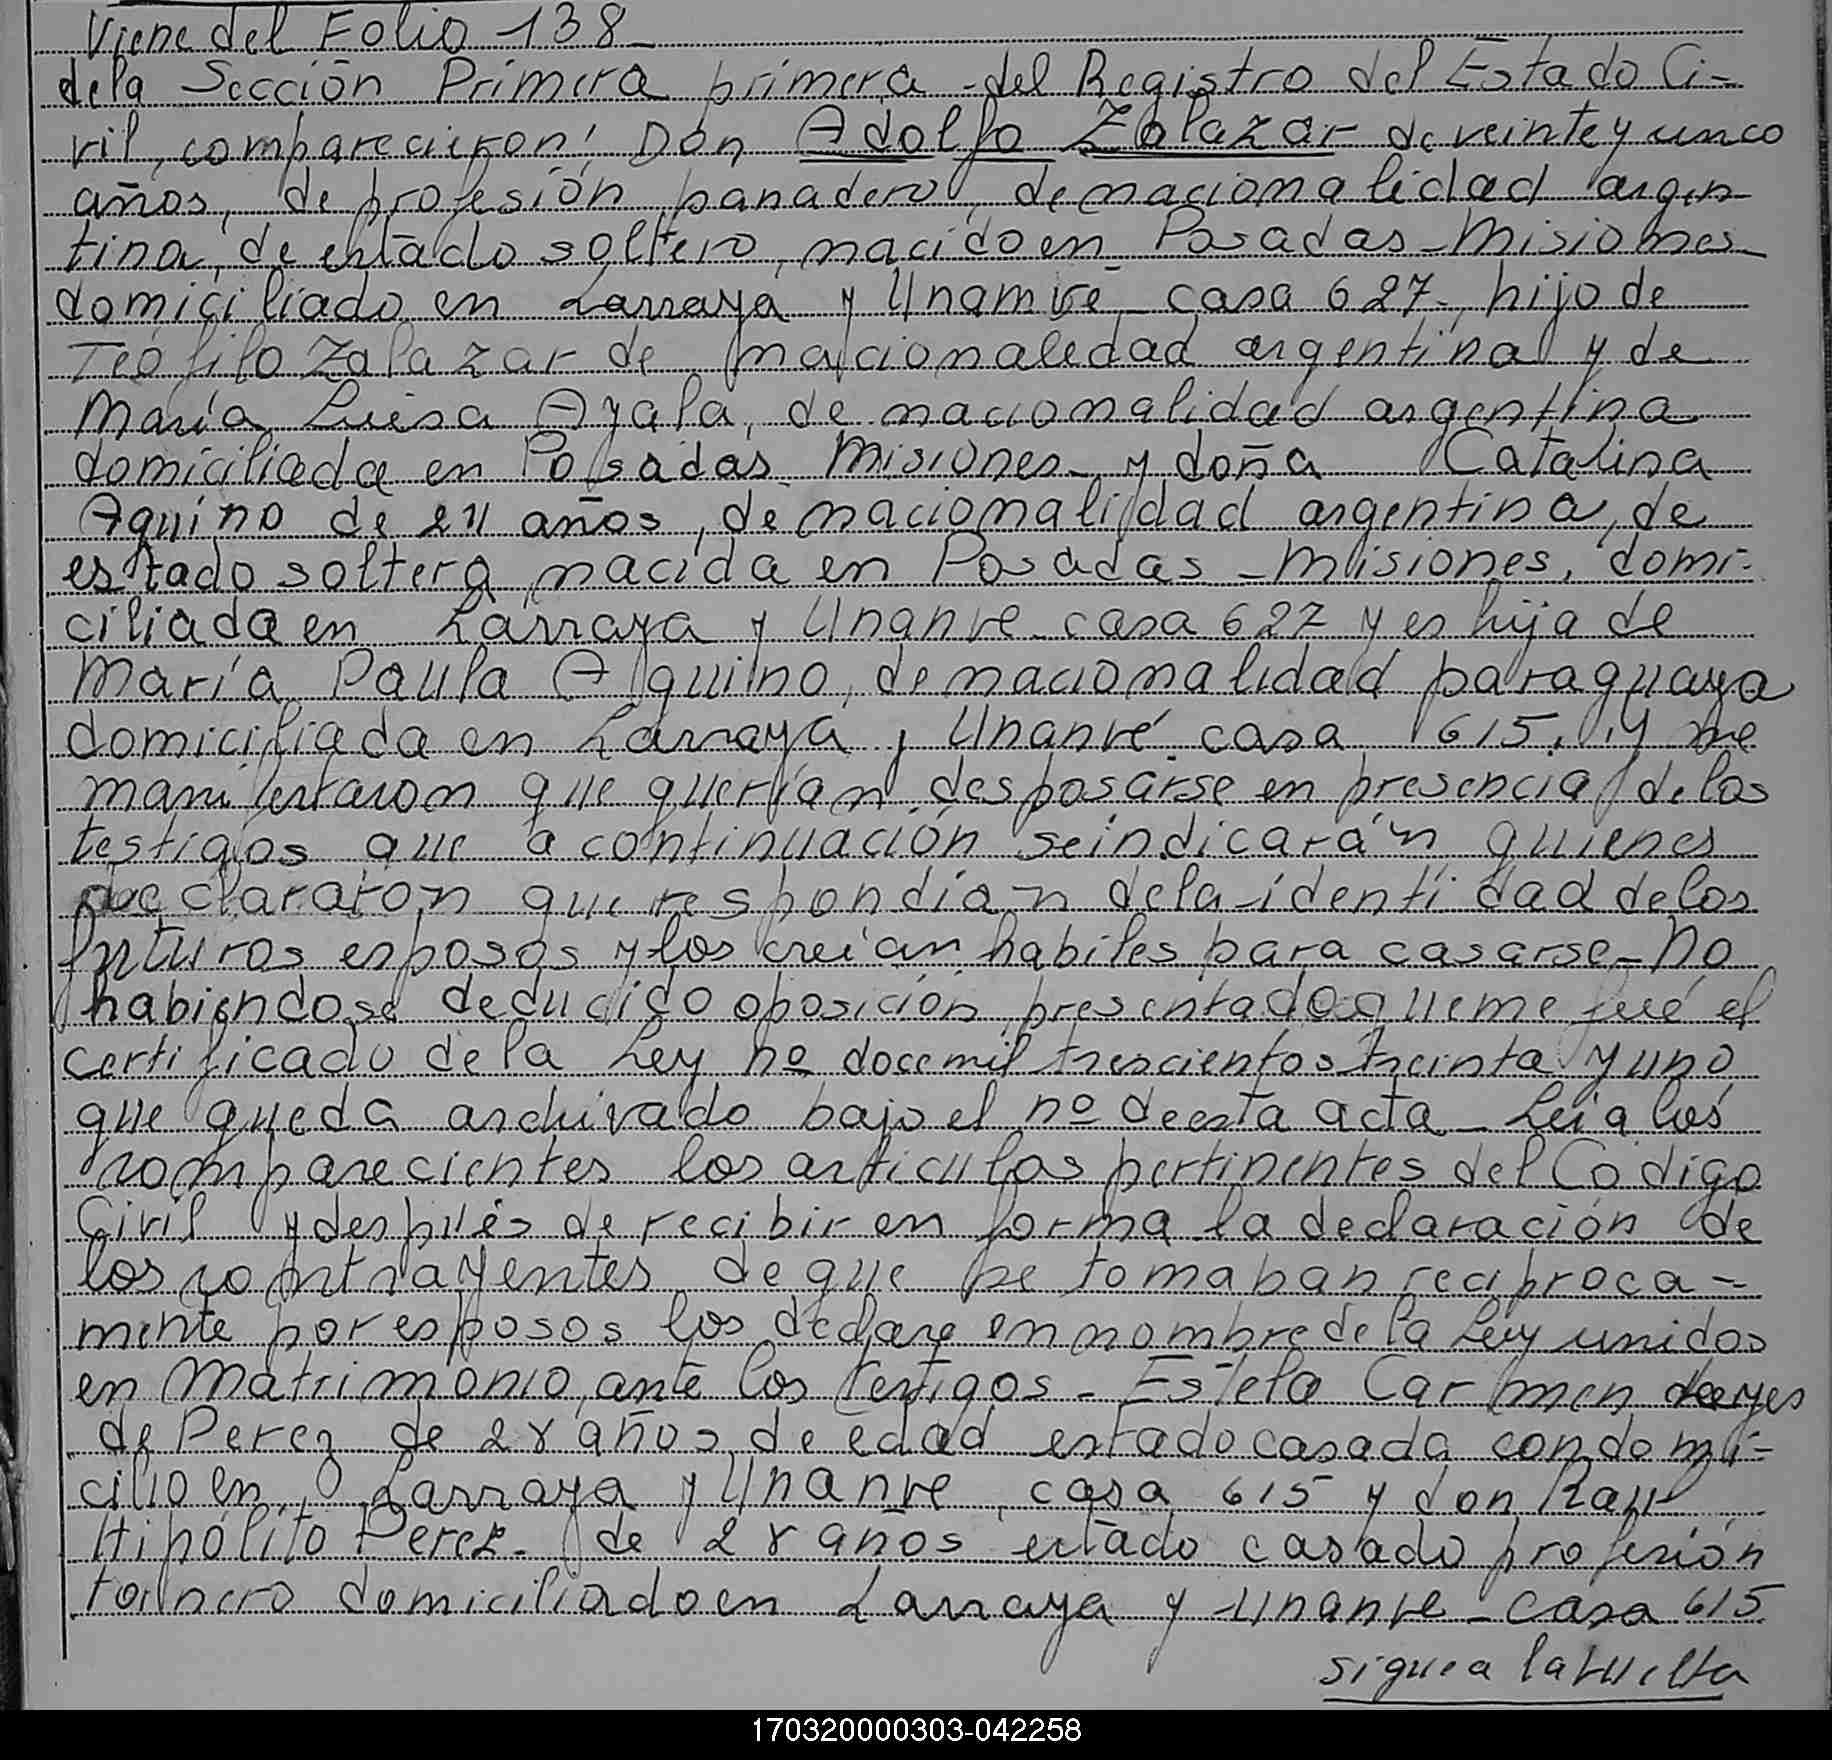 Viene del Folio 138-
dela Sección Primera primera - del Registro del Estado Ci-
vil, comparecieron: Don Adolfo Zalazar de veinte y unco
años, de profesión panadero, de nacionalidad argen-
tina, de estado soltero, nacido en Posadas - Misiones
domiciliado en Larraya y Unamve casa 627, hijo de
Teófilo Zalazar de nacionaledad argentina y de
María Luisa Ayala, de nacionalidad argentina
domiciliada en Posadas Misiones y doña Catalina
Aquino de años, de nacionalidad argentina, de
estado soltera, nacida en Posadas - Misiones, domi-
ciliada en Larraya y Unanve - casa 627 y es hija de
María Paula Aquino, de nacionalidad paraguaya
domiciliada en Larraya y Unanvé casa 615. Y me
manifestaron que querían desposarse en presencia de los
testigos que a continuación se indicarán quienes
declararon que respondían dela identidad de los
futuros esposos y los creían habiles para casarse - No
habiendose deducido oposición, presentado que me fué el
certificado de la Ley nº doce mil trescientos treinta y uno
que queda archivado bajo el nº de esta acta - Leí a los
comparecientes los articulos pertinentes del Código
Civil y después de recibir en forma la declaración de
los contrayentes de que se tomaban reciproca-
mente por esposos los declare en nombre de la Ley unidos
en Matrimonio, ante los testigos - Estela Carmen
de Perez de 28 años de edad estado casada con domi-
cilio en Larraya y Unanve casa 615 y don Raul
Hipólito Perez - de 28 años estado casado profesión
tornero domiciliado en Larraya y Unanve - casa 615
sigue a la vuelta
170320000303-042258